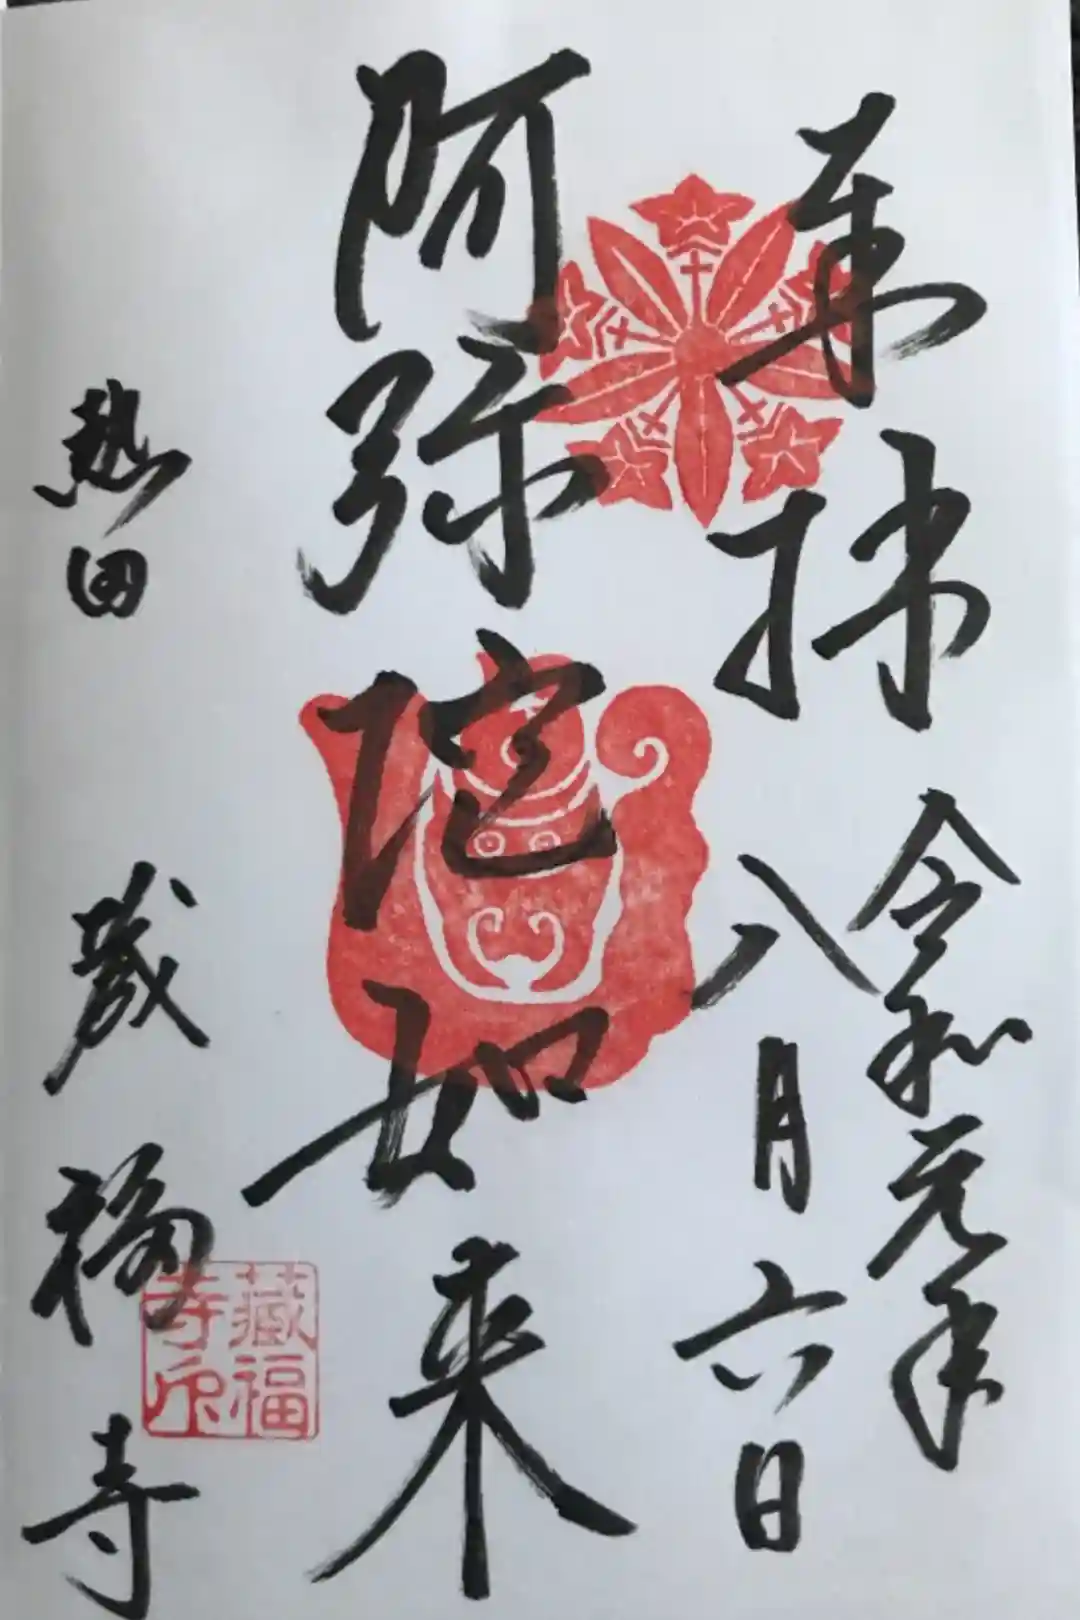 奉拝
令和元年
八月六日
阿弥陀如来
熱田 蔵福寺
藏福
寺印